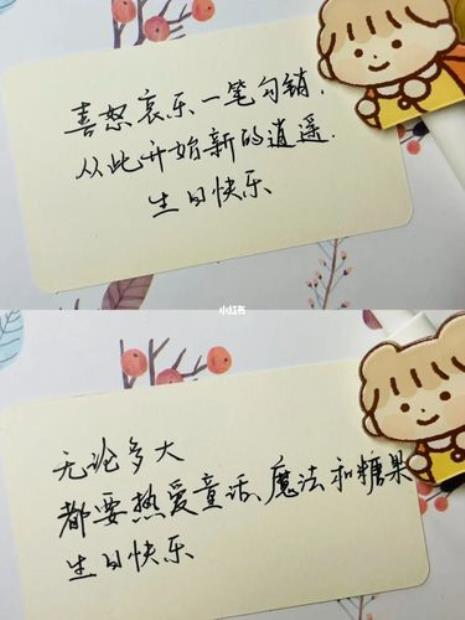 喜怒哀乐一笔勾销，
从此开始新的逍遥.
生日快乐
小红书
无论多大
都要热爱童话、魔法和糖果
生日快乐